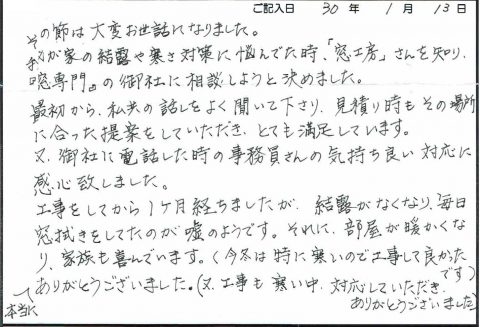 ご記入日 30年 1月 13日
その節は大変お世話になりました。
わが家の結露や寒さ対策に悩んでた時、「窓工房」さんを知り、
『窓専門』の御社に相談しようと決めました。
最初から、私共の話しをよく聞いて下さり、見積り時もその場所
に合った提案をしていただき、とても満足しています。
又、御社に電話した時の事務員さんの気持ち良い対応に
感心致しました。
工事をしてから1ヶ月経ちましたが、結露がなくなり、毎日
窓拭きをしてたのが嘘のようです。それに、部屋が暖かくな
り、家族も喜んでいます。(今冬は特に寒いので工事して良かった
です)
本当にありがとうございました。(又、工事も寒い中、対応していただき、
ありがとうございました)